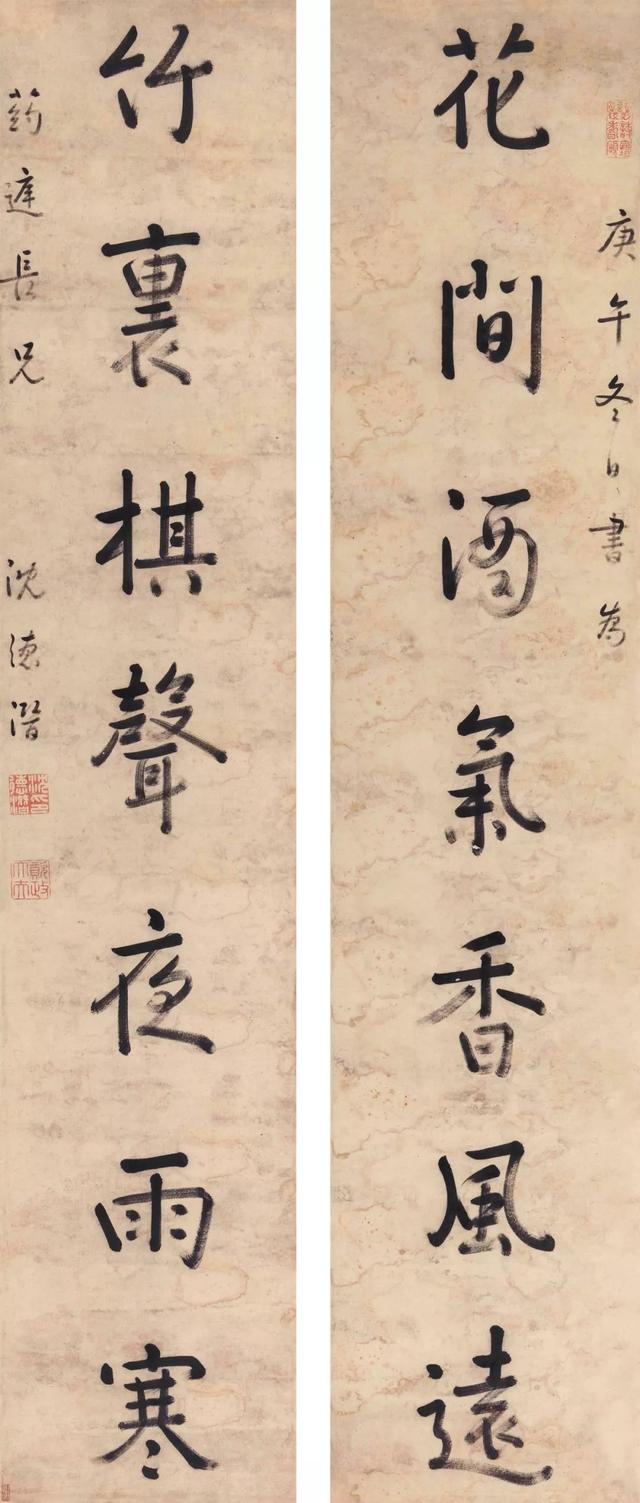 庚午冬日書為
花間酒氣香風遠
竹裏棋聲夜雨寒
葯遲長兄
沈德潛
沈德潛印